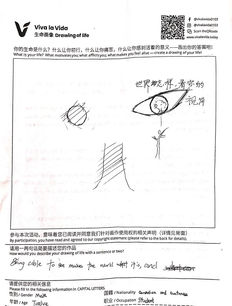 Viva la Vida
生命画像 Drawing of life
@vivalavida0101
@vivalavida0101
Scan the QRcode
www.vivalavida.today
你的生命是什么？什么让你前行，什么让你痛苦，什么让你感到活着的意义——画出你的答案吧！
What is your life? What motivates you, what afflicts you, what makes you feel alive — create a drawing of your life!
世界
参与本次活动，意味着您已阅读并同意我们针对画作使用权的相关声明（详情见背面）
By participation, you have read and agreed to our copyright statement (please refer to the back for details).
请用一两句话简要描述您的作品
How would you describe your drawing of life with a sentence or two?
Being able to see makes the world what it is, and
请提供您的相关信息
Please fill in the following information in CAPITAL LETTERS
性别 / Gender Male
国籍 / Nationality
年龄 / Age Twelve
职业 / Occupation Student